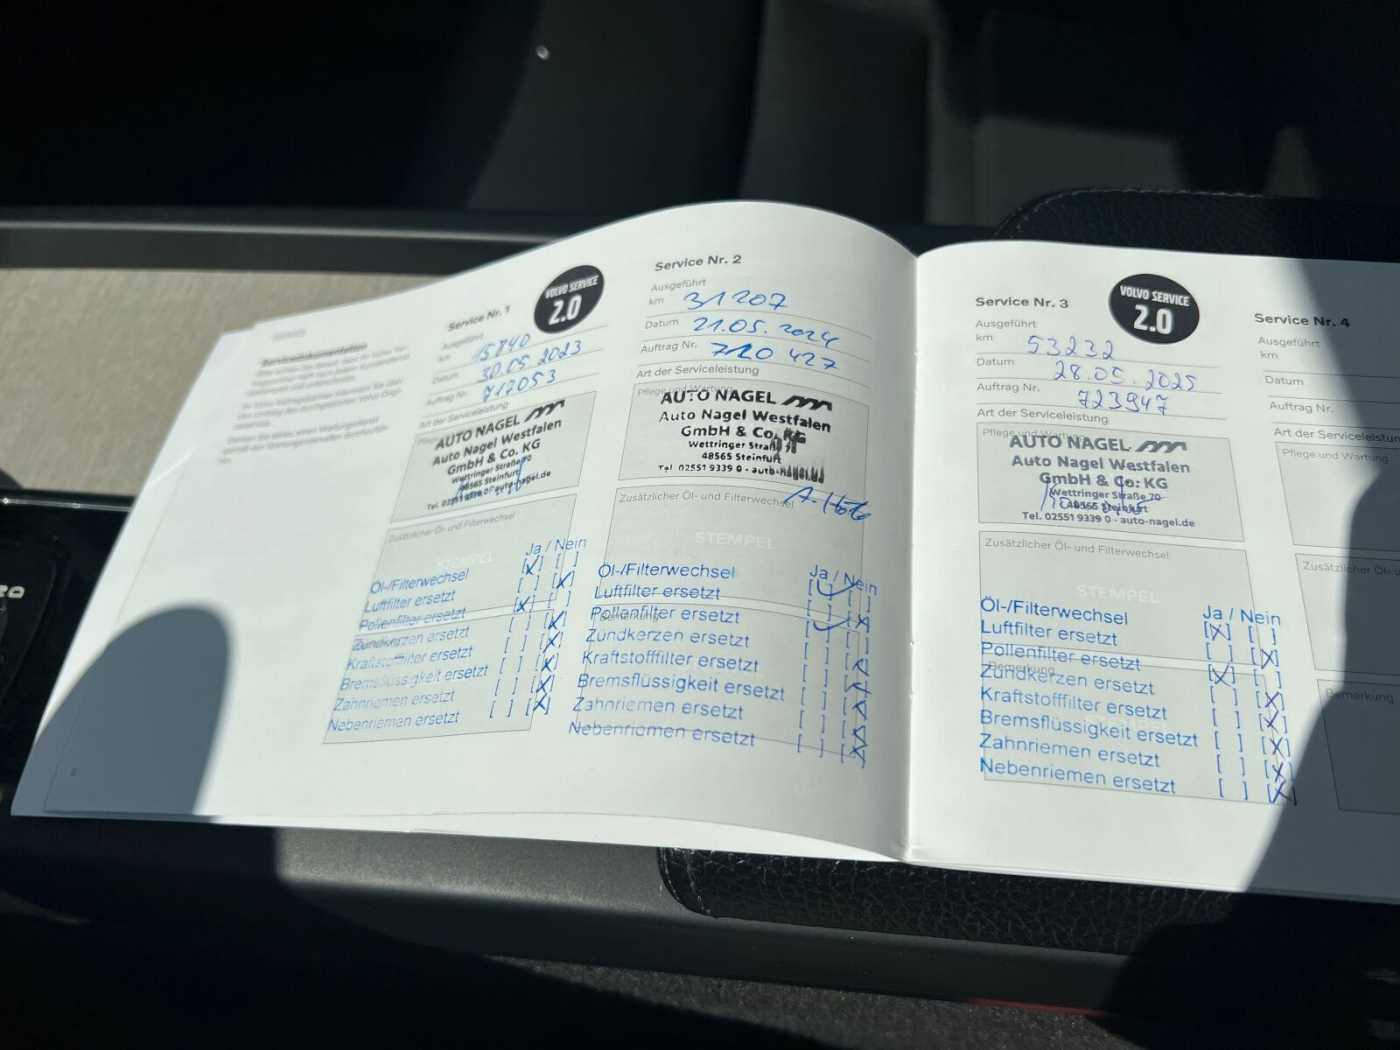 Servicedokumentation
Service Nr. 1
VOLVO SERVICE
2.0
Ausgeführt
km 15840
Datum 30.05.2023
Auftrag Nr. 717053
Art der Serviceleistung
AUTO NAGEL
Auto Nagel Westfalen
GmbH & Co. KG
Wettringer Straße 70
48565 Steinfurt
Tel. 02551 9339 0 · auto-nagel.de
Zusätzlicher Öl- und Filterwechsel
STEMPEL
Ja / Nein
Öl-/Filterwechsel [x] [ ]
Luftfilter ersetzt [ ] [x]
Pollenfilter ersetzt [x] [ ]
Zündkerzen ersetzt [ ] [x]
Kraftstoffilter ersetzt [ ] [x]
Bremsflüssigkeit ersetzt [ ] [x]
Zahnriemen ersetzt [ ] [x]
Nebenriemen ersetzt [ ] [x]
Service Nr. 2
Ausgeführt
km 31207
Datum 21.05.2024
Auftrag Nr. 720 427
Art der Serviceleistung
Pflege und Wartung
AUTO NAGEL
Auto Nagel Westfalen
GmbH & Co. KG
Wettringer Straße
48565 Steinfurt
Tel 02551 9339 0 - auto-nagel.de
Zusätzlicher Öl- und Filterwechsel
STEMPEL
Ja / Nein
Öl-/Filterwechsel
Luftfilter ersetzt
Pollenfilter ersetzt
Bemerkung
Zündkerzen ersetzt
Kraftstofffilter ersetzt
Bremsflüssigkeit ersetzt
Zahnriemen ersetzt
Nebenriemen ersetzt
Service Nr. 3
VOLVO SERVICE
2.0
Ausgeführt
km 53232
Datum 28.05.2025
Auftrag Nr. 723947
Art der Serviceleistung
Pflege und Wartung
AUTO NAGEL
Auto Nagel Westfalen
GmbH & Co. KG
Wettringer Straße 70
48565 Steinfurt
Tel. 02551 9339 0 · auto-nagel.de
Zusätzlicher Öl- und Filterwechsel
STEMPEL
Ja / Nein
Öl-/Filterwechsel [x] [ ]
Luftfilter ersetzt [ ] [x]
Pollenfilter ersetzt [x] [ ]
Bemerkung
Zündkerzen ersetzt [ ] [x]
Kraftstofffilter ersetzt [ ] [x]
Bremsflüssigkeit ersetzt [ ] [x]
Zahnriemen ersetzt [ ] [x]
Nebenriemen ersetzt [ ] [x]
Service Nr. 4
Ausgeführt
km
Datum
Auftrag Nr.
Art der Serviceleistung
Pflege und Wartung
Zusätzlicher Öl- und
Bemerkung